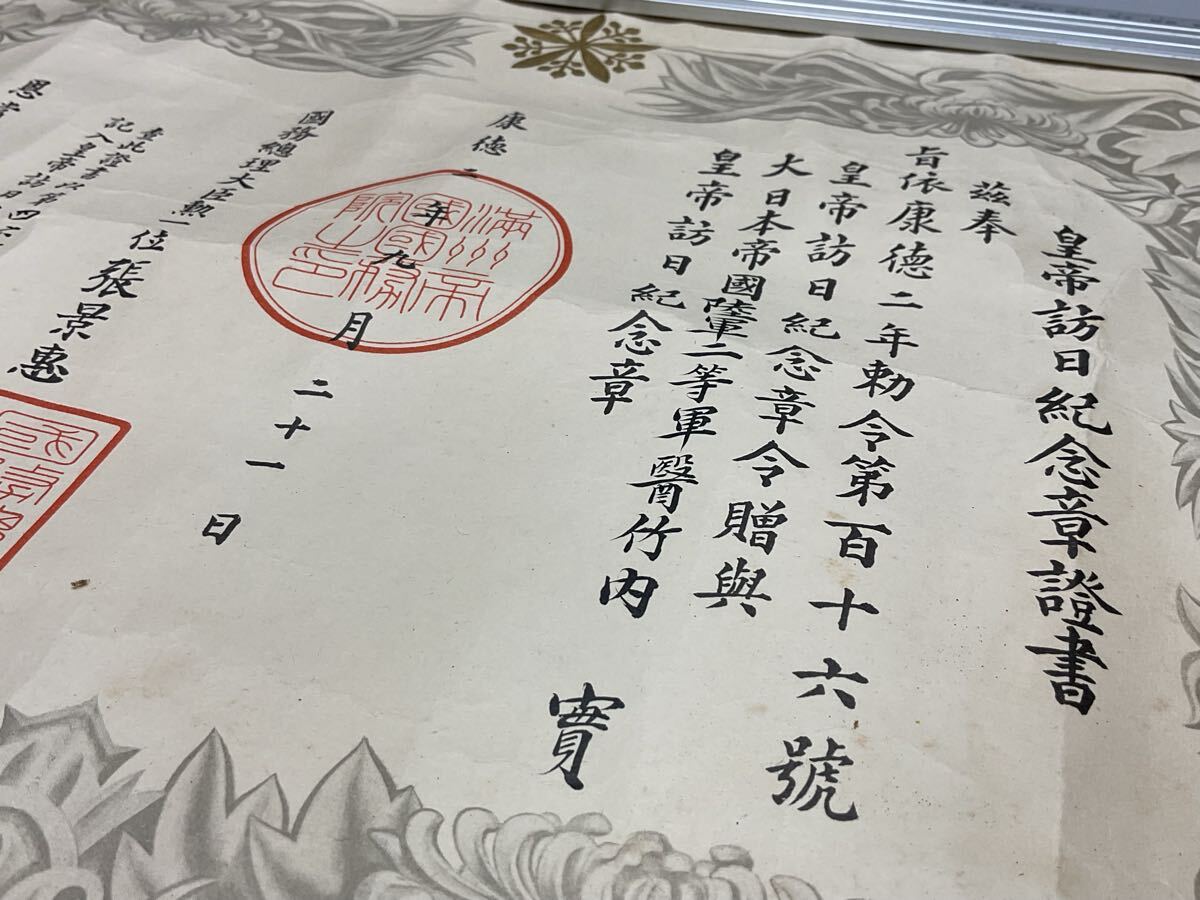 皇帝訪日紀念章證書
茲奉
旨依康德二年勅令第百十六號
皇帝訪日紀念章令贈與
大日本帝國陸軍二等軍醫竹内 實
皇帝訪日紀念章
康德二年九月二十一日
滿洲帝國國務院之印
國務總理大臣勲一位張景惠
查此證書以第四
記入皇帝訪日
恩賞